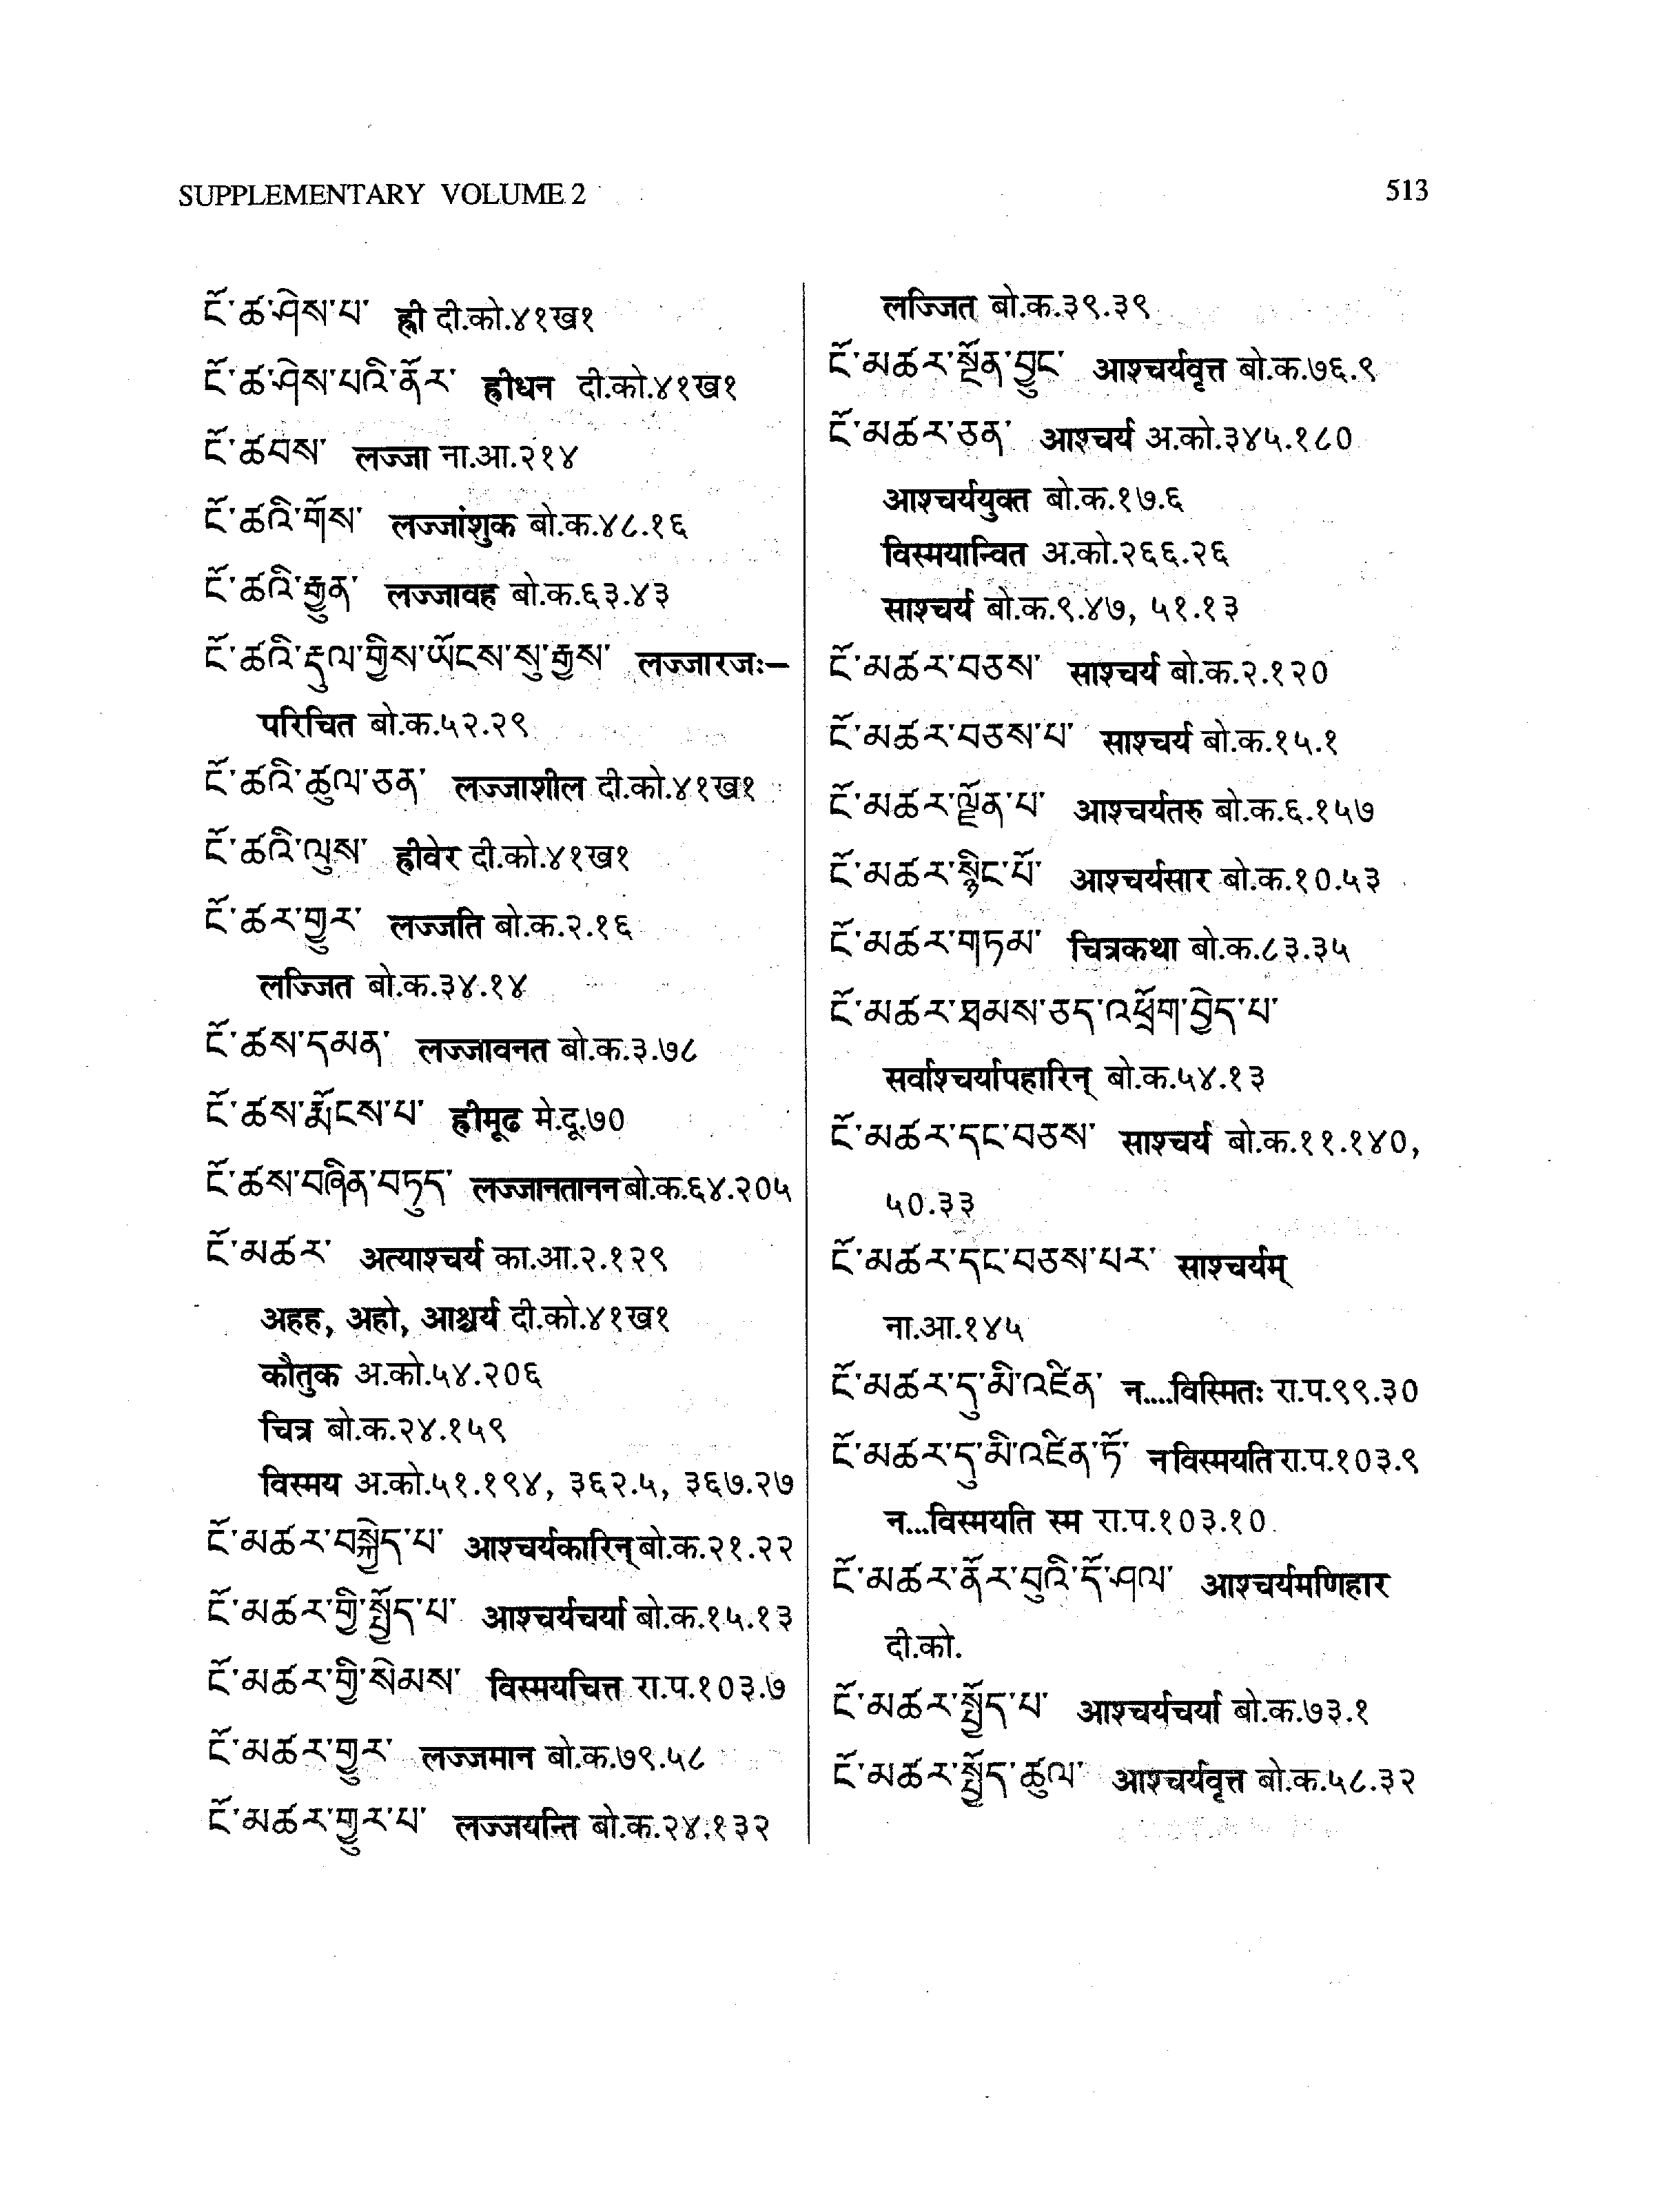 SUPPLEMENTARY VOLUME 2
513
ངོ་ཚ་ཤེས་པ་ ह्री दी.को.४१ख१
ངོ་ཚ་ཤེས་པའི་ནོར་ ह्रीधन दी.को.४१ख१
ངོ་ཚབས་ लज्जा ना.आ.२१४
ངོ་ཚའི་གོས་ लज्जांशुक बो.क.४८.१६
ངོ་ཚའི་རྒྱུན་ लज्जावह बो.क.६३.४३
ངོ་ཚའི་རྡུལ་གྱིས་ཡོངས་སུ་རྒྱས་ लज्जारजः–
परिचित बो.क.५२.२९
ངོ་ཚའི་ཚུལ་ཅན་ लज्जाशील दी.को.४१ख१
ངོ་ཚའི་ལུས་ ह्रीवेर दी.को.४१ख१
ངོ་ཚར་གྱུར་ लज्जति बो.क.२.१६
लज्जित बो.क.३४.१४
ངོ་ཚས་དམན་ लज्जावनत बो.क.३.७८
ངོ་ཚས་རྨོངས་པ་ ह्रीमूढ मे.दू.७०
ངོ་ཚས་བཞིན་བཏུད་ लज्जानतानन बो.क.६४.२०५
ངོ་མཚར་ अत्याश्चर्य का.आ.२.१२९
अहह, अहो, आश्चर्य दी.को.४१ख१
कौतुक अ.को.५४.२०६
चित्र बो.क.२४.१५९
विस्मय अ.को.५१.१९४, ३६२.५, ३६७.२७
ངོ་མཚར་བསྐྱེད་པ་ आश्चर्यकारिन् बो.क.२१.२२
ངོ་མཚར་གྱི་སྤྱོད་པ་ आश्चर्यचर्या बो.क.१५.१३
ངོ་མཚར་གྱི་སེམས་ विस्मयचित्त रा.प.१०३.७
ངོ་མཚར་གྱུར་ लज्जमान बो.क.७९.५८
ངོ་མཚར་གྱུར་པ་ लज्जयन्ति बो.क.२४.१३२
लज्जित बो.क.३९.३९
ངོ་མཚར་སྔོན་བྱུང་ आश्चर्यवृत्त बो.क.७६.९
ངོ་མཚར་ཅན་ आश्चर्य अ.को.३४५.१८०
आश्चर्ययुक्त बो.क.१७.६
विस्मयान्वित अ.को.२६६.२६
साश्चर्य बो.क.९.४७, ५१.१३
ངོ་མཚར་བཅས་ साश्चर्य बो.क.२.१२०
ངོ་མཚར་བཅས་པ་ साश्चर्य बो.क.१५.१
ངོ་མཚར་ལྗོན་པ་ आश्चर्यतरु बो.क.६.१५७
ངོ་མཚར་སྙིང་པོ་ आश्चर्यसार बो.क.१०.५३
ངོ་མཚར་གཏམ་ चित्रकथा बो.क.८३.३५
ངོ་མཚར་ཐམས་ཅད་འཕྲོག་བྱེད་པ་
सर्वाश्चर्यापहारिन् बो.क.५४.१३
ངོ་མཚར་དང་བཅས་ साश्चर्य बो.क.११.१४०,
५०.३३
ངོ་མཚར་དང་བཅས་པར་ साश्चर्यम्
ना.आ.१४५
ངོ་མཚར་དུ་མི་འཛིན་ न....विस्मितः रा.प.९९.३०
ངོ་མཚར་དུ་མི་འཛིན་ཏོ་ न विस्मयति रा.प.१०३.९
न...विस्मयति स्म रा.प.१०३.१०
ངོ་མཚར་ནོར་བུའི་དོ་ཤལ་ आश्चर्यमणिहार
दी.को.
ངོ་མཚར་སྤྱོད་པ་ आश्चर्यचर्या बो.क.७३.१
ངོ་མཚར་སྤྱོད་ཚུལ་ आश्चर्यवृत्त बो.क.५८.३२